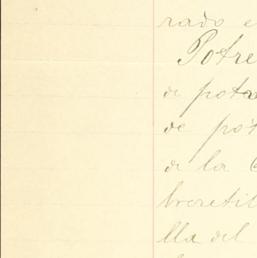 rado e
Potre
de potre
de pot
de la C
bretil
lla del